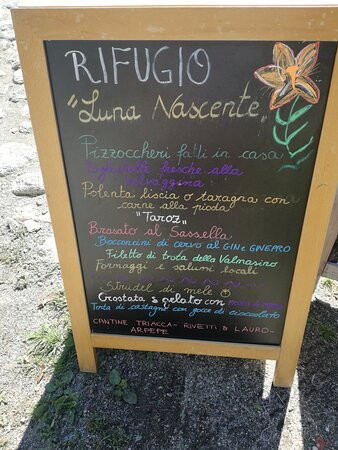 RIFUGIO
"Luna Nascente"
Pizzoccheri fatti in casa
fresche alla
Polenta liscia o taragna con
carne alla pioda
"Taroz"
Brasato al Sassella
Bocconcini di cervo al GIN e GINEPRO
Filetto di trota della Valmasino
Formaggi e salumi locali
Strudel di mele
Crostata e gelato con
Torta di castagne con gocce di cioccolato
CANTINE TRIACCA - RIVETTI & LAURO -
ARPEPE